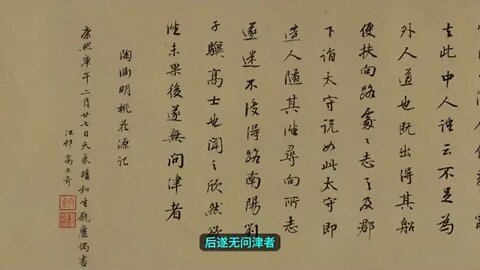 去此中人語云不足為
外人道也既出得其船
便扶向路處〻志之及郡
下詣太守說如此太守即
遣人隨其往尋向所志
遂迷不復得路南陽劉
子驥高士也聞之欣然欲
往未果後遂無問津者
陶淵明桃花源記
康熙庚午二月廿七日天氣晴和坐瓶廬偶書
江邨高士奇
后遂无问津者